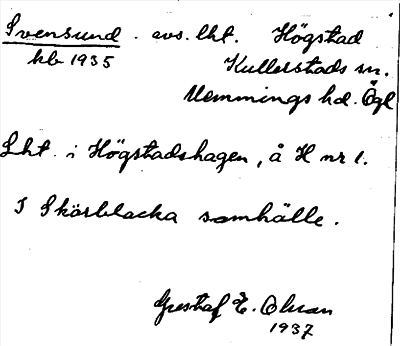 Svensund. avs. lht. Högstad
kb 1935 Kullerstads sn.
Memmings hd. Ögl
Lht. i Högstadshagen, å H nr 1.
I Skärblacka samhälle.
Gustaf E. Olsson
1937